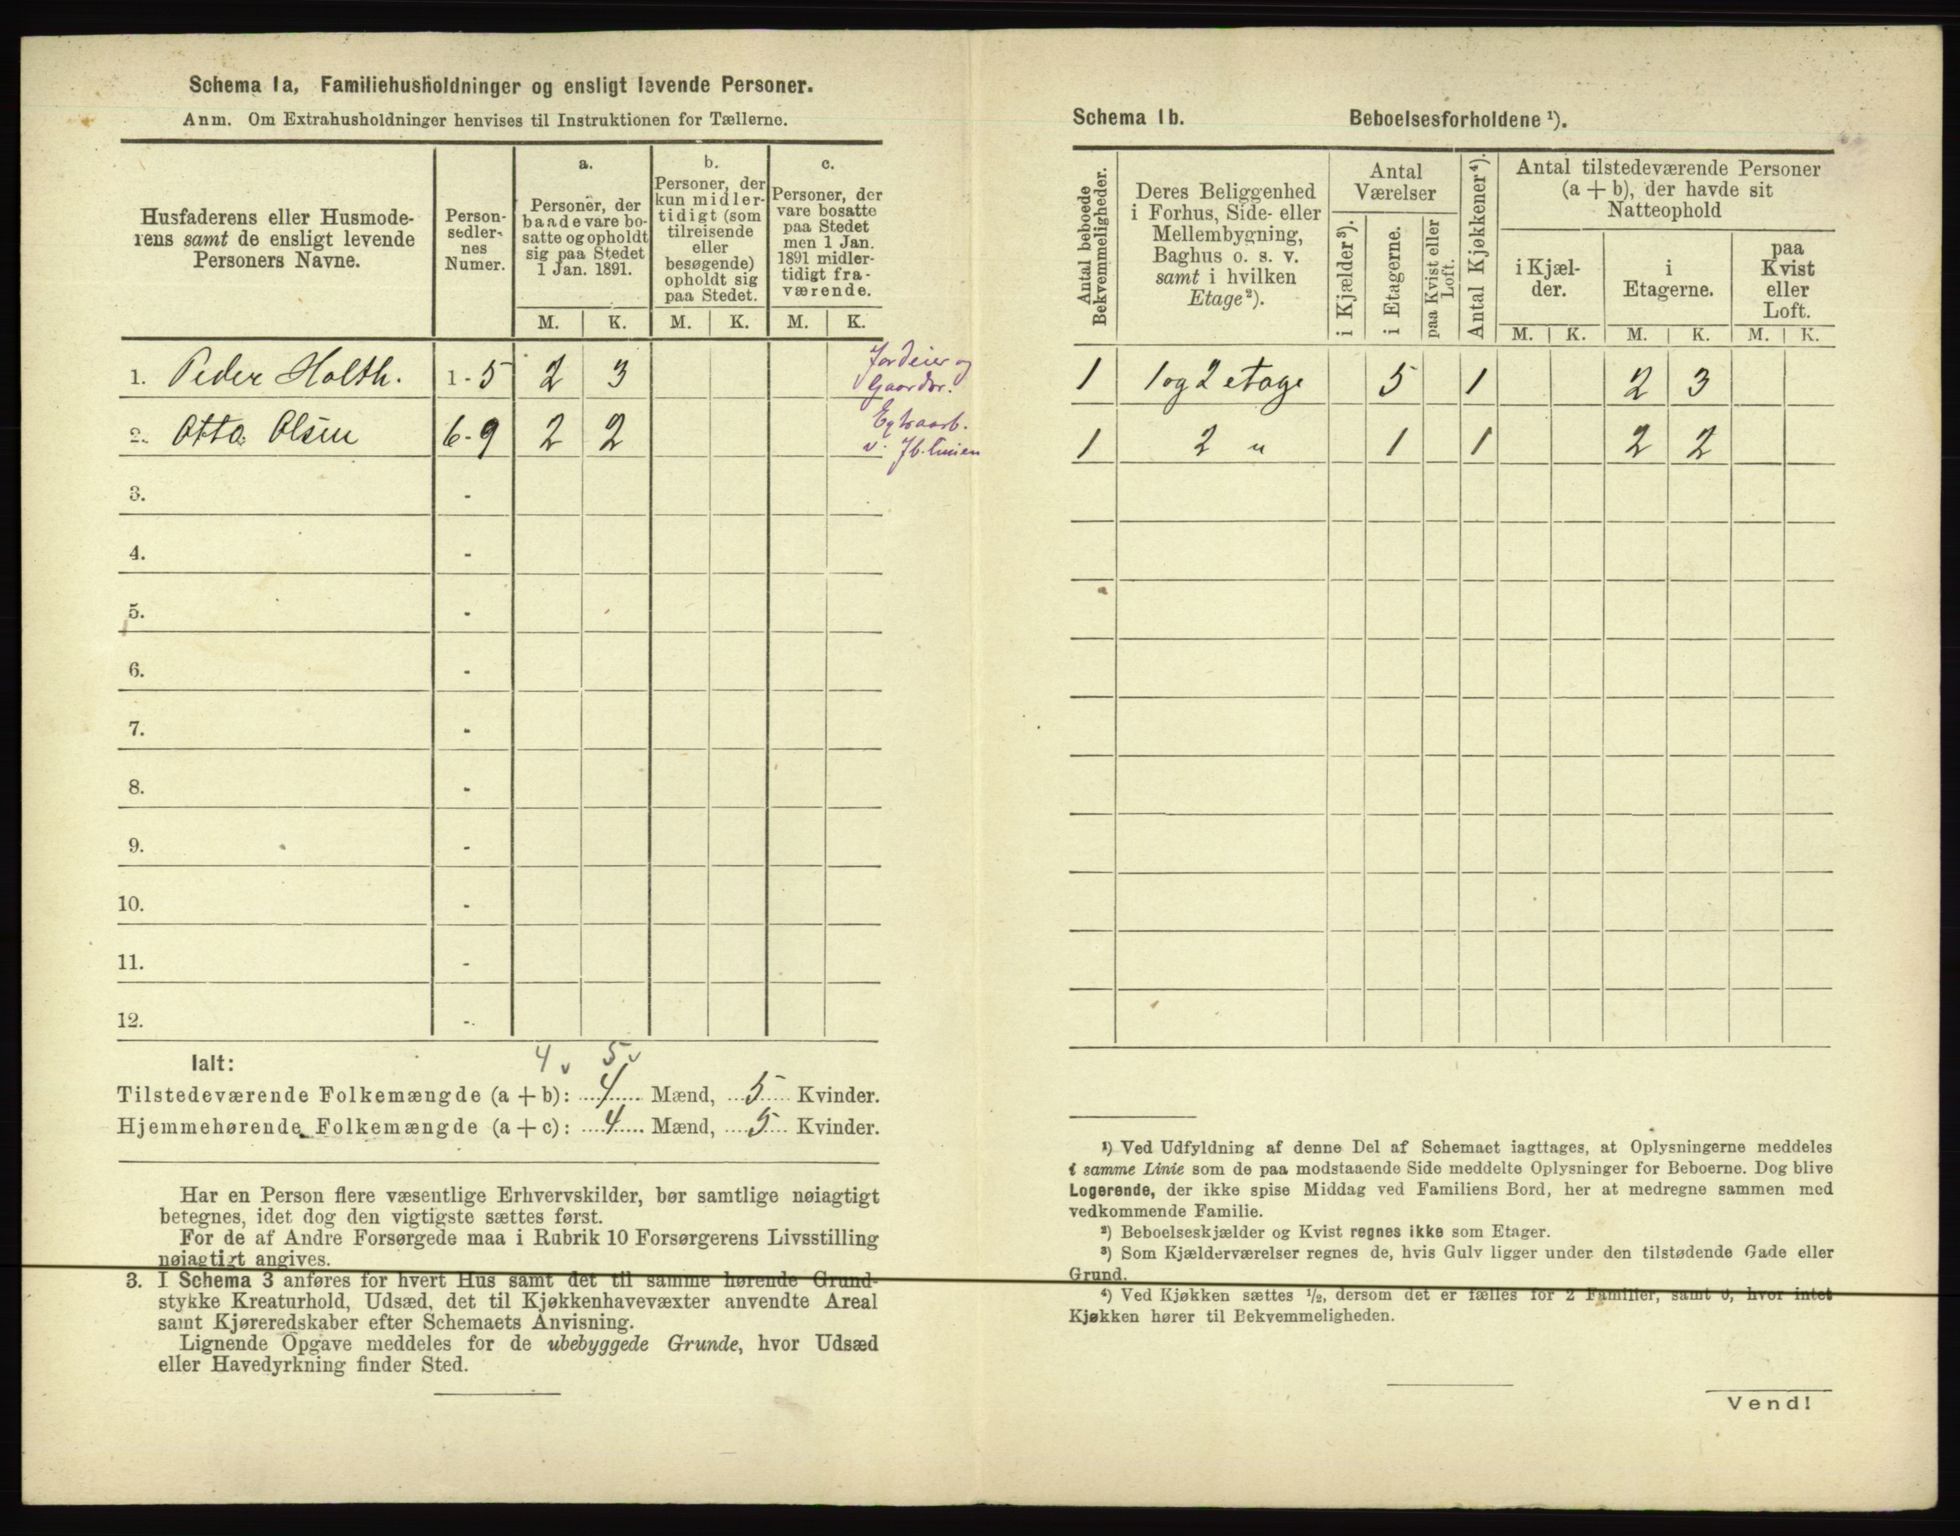 Schema 1a, Familiehusholdninger og ensligt levende Personer.
Anm. Om Extrahusholdninger henvises til Instruktionen for Tællerne.
Husfaderens eller Husmode-
rens samt de ensligt levende
Personers Navne.
Person-
sedler-
nes
Numer.
a.
Personer, der
baade vare bo-
satte og opholdt
sig paa Stedet
1 Jan. 1891.
b.
Personer, der
kun midler-
tidigt (som
tilreisende
eller
besøgende)
opholdt sig
paa Stedet.
c.
Personer, der
vare bosatte
paa Stedet
men 1 Jan.
1891 midler-
tidigt fra-
værende.
M. K. M. K. M. K.
1. Peder Holth. 1-5 2 3 Jordeier og
Gaardbr.
2. Otto Olsen 6-9 2 2
v. Jb. linien
3. -
4. -
5. -
6. -
7. -
8. -
9. -
10. -
11. -
12. -
Ialt: 4 v 5 v
Tilstedeværende Folkemængde (a + b): 4 Mænd, 5 Kvinder.
Hjemmehørende Folkemængde (a + c): 4 Mænd, 5 Kvinder.
Har en Person flere væsentlige Erhvervskilder, bør samtlige nøiagtigt
betegnes, idet dog den vigtigste sættes først.
For de af Andre Forsørgede maa i Rubrik 10 Forsørgerens Livsstilling
nøiagtigt angives.
3. I Schema 3 anføres for hvert Hus samt det til samme hørende Grund-
stykke Kreaturhold, Udsæd, det til Kjøkkenhavevæxter anvendte Areal
samt Kjøreredskaber efter Schemaets Anvisning.
Lignende Opgave meddeles for de ubebyggede Grunde, hvor Udsæd
eller Havedyrkning finder Sted.
Schema 1b. Beboelsesforholdene ¹).
Antal beboede
Bekvemmeligheder.
Deres Beliggenhed
i Forhus, Side- eller
Mellembygning,
Baghus o. s. v.
samt i hvilken
Etage ²).
Antal
Værelser
i Kjælder ³).
i Etagerne.
paa Kvist eller
Loft.
Antal Kjøkkener ⁴).
Antal tilstedeværende Personer
(a + b), der havde sit
Natteophold
i Kjæl-
der.
i
Etagerne.
paa
Kvist
eller
Loft.
M. K. M. K. M. K.
1 1 og 2 etage 5 1 2 3
1 2 " 1 1 2 2
¹) Ved Udfyldning af denne Del af Schemaet iagttages, at Oplysningerne meddeles
i samme Linie som de paa modstaaende Side meddelte Oplysninger for Beboerne. Dog blive
Logerende, der ikke spise Middag ved Familiens Bord, her at medregne sammen med
vedkommende Familie.
²) Beboelseskjælder og Kvist regnes ikke som Etager.
³) Som Kjælderværelser regnes de, hvis Gulv ligger under den tilstødende Gade eller
Grund.
⁴) Ved Kjøkken sættes ½, dersom det er fælles for 2 Familier, samt 0, hvor intet
Kjøkken hører til Bekvemmeligheden.
Vend!